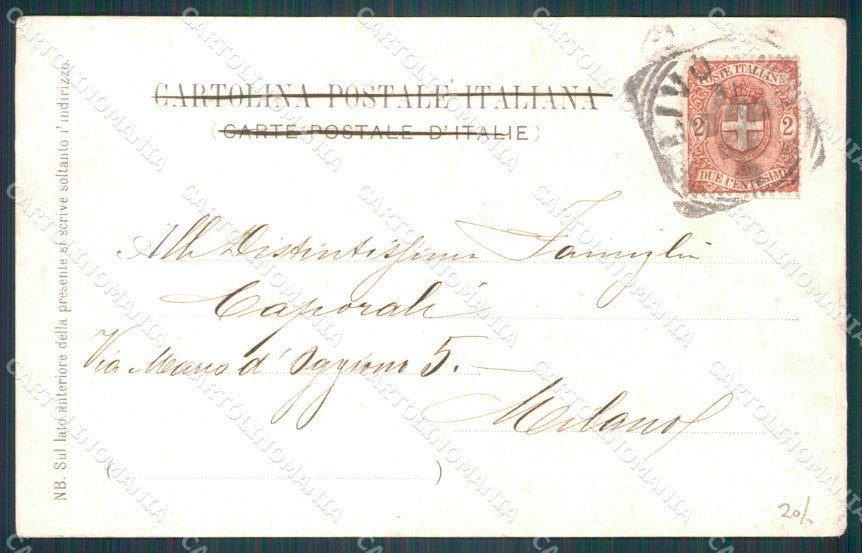 CARTOLINA POSTALE ITALIANA
(CARTE POSTALE D'ITALIE)
POSTE ITALIANE
2 2
DUE CENTESIMI
LIVO
Alla Distintissima Famiglia
Caporali
Via Marco d'Oggiono 5.—
Milano
( )
NB. Sul lato anteriore della presente si scrive soltanto l'indirizzo.
20/.
CARTOLINOMANIA